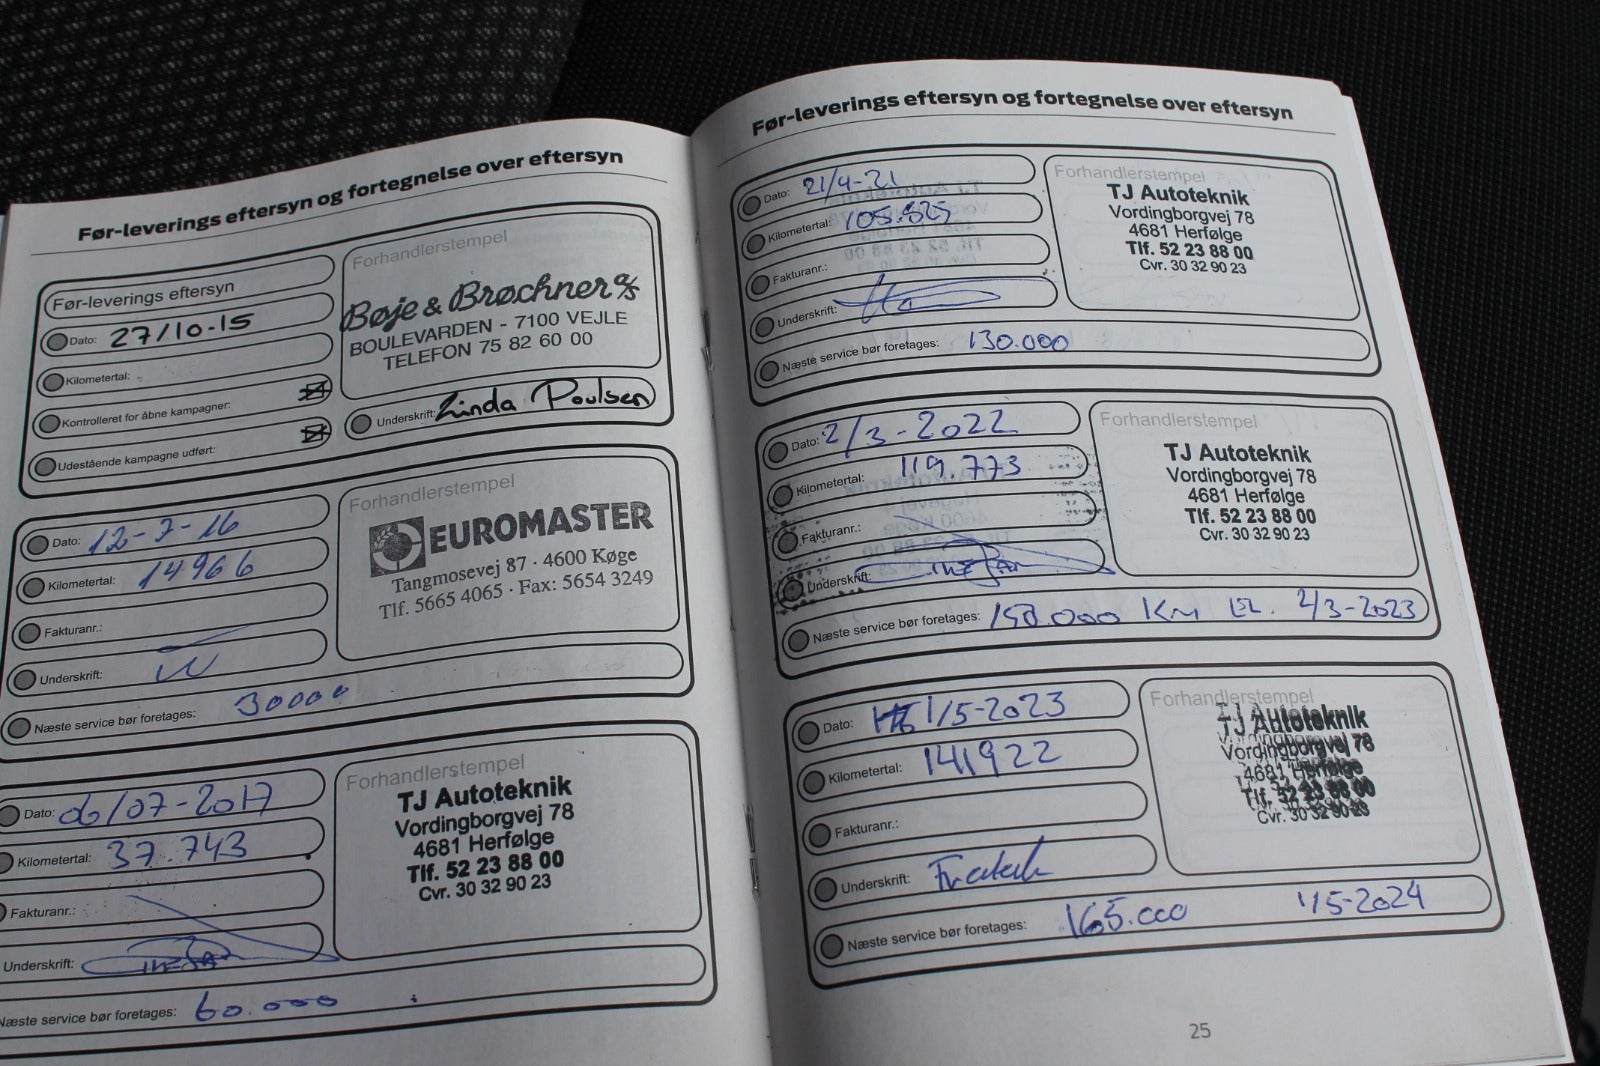 Før-leverings eftersyn og fortegnelse over eftersyn
Før-leverings eftersyn
Dato: 27/10-15
Kilometertal:
Kontrolleret for åbne kampagner:
Udestående kampagne udført:
Forhandlerstempel
Bøje & Brøchner A/S
BOULEVARDEN - 7100 VEJLE
TELEFON 75 82 60 00
Underskrift: Linda Poulsen
Dato: 12-7-16
Kilometertal: 14966
Fakturanr.:
Underskrift:
Næste service bør foretages: 30000
Forhandlerstempel
EUROMASTER
Tangmosevej 87 · 4600 Køge
Tlf. 5665 4065 · Fax: 5654 3249
Dato: 06/07-2017
Kilometertal: 37.743
Fakturanr.:
Underskrift:
Næste service bør foretages: 60.000
Forhandlerstempel
TJ Autoteknik
Vordingborgvej 78
4681 Herfølge
Tlf. 52 23 88 00
Cvr. 30 32 90 23
Før-leverings eftersyn og fortegnelse over eftersyn
Dato: 21/4-21
Kilometertal: 105.525
Fakturanr.:
Underskrift:
Næste service bør foretages: 130.000
Forhandlerstempel
TJ Autoteknik
Vordingborgvej 78
4681 Herfølge
Tlf. 52 23 88 00
Cvr. 30 32 90 23
Dato: 2/3-2022
Kilometertal: 119.773
Fakturanr.:
Underskrift:
Næste service bør foretages: 150.000 Km 2/3-2023
Forhandlerstempel
TJ Autoteknik
Vordingborgvej 78
4681 Herfølge
Tlf. 52 23 88 00
Cvr. 30 32 90 23
Dato: 1/5-2023
Kilometertal: 141922
Fakturanr.:
Underskrift:
Næste service bør foretages: 165.000 1/5-2024
Forhandlerstempel
TJ Autoteknik
Vordingborgvej 78
4681 Herfølge
Tlf. 52 23 88 00
Cvr. 30 32 90 23
25